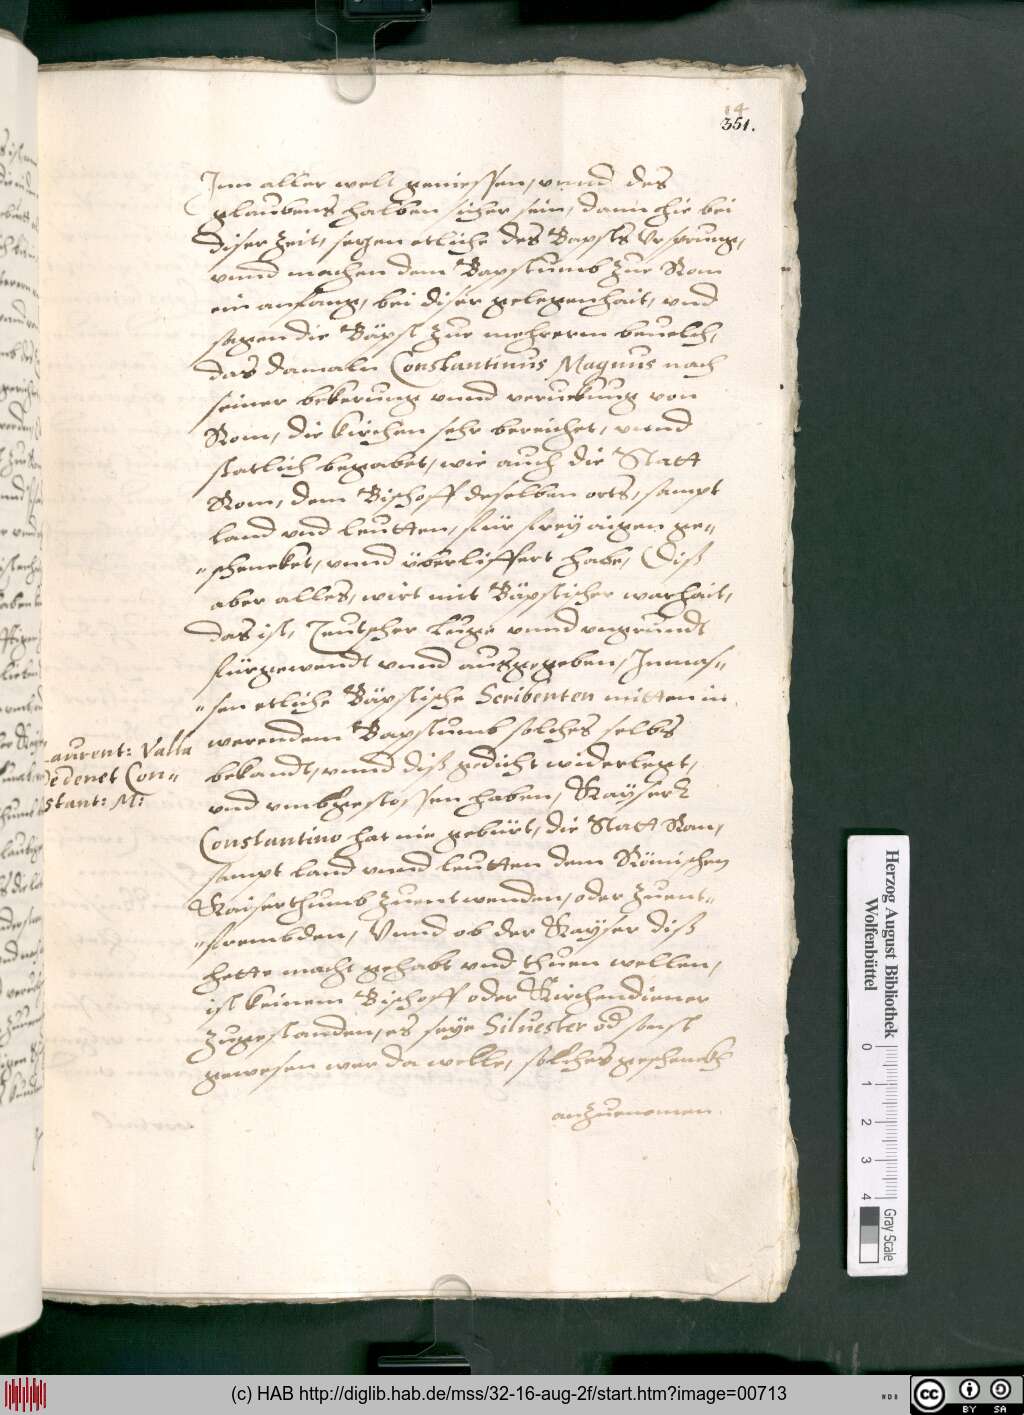 14
351.
Inn aller welt geniessen, vnnd des
glaubens halben sicher sein, dann hie bei
diser zeit, setzen etliche des Bapsts Vrsprung,
vnnd machen dem Bapstumb zue Rom
ein anfang, bei diser gelegenhait, vnd
sagen die Bäpst zue mehrerm beuelch,
das damaln Constantinus Magnus nach
seiner bekerung vnnd veruckung von
Rom, die kirchen sehr bereichet, vnnd
statlich begabet, wie auch die Statt
Rom, dem Bischoff deselben orts, sampt
land vnd leutten, für frey aigen ge-
-schencket, vnnd überliffert habe, Diß
aber alles, wirt mit Bäpstischer warhait,
das ist, Teutscher Luge vnnd vngrundt
fürgewendt vnnd ausgegeben, Inmas-
-sen etliche Bäpstische Scribenten mitten in
werendem Bapstumb solches selbs
bekandt, vnnd diß gedicht widerlegt,
vnd vmbgestossen haben, Kayser
Constantino hat nie gebürt, die Statt Rom,
sampt land vnnd leutten dem Römischen
Kaiserthumb zuentwenden, oder zuent-
-frembden, Vnnd ob der Kayser diß
hette macht gehabt vnd thuen wellen,
ist keinem Bischoff oder Kirchendiener
zugestanden, es seye Siluester od sonst
gewesen wer da welle, solches geschenckh
anzuenemen
Laurent: Valla
de donet Con-
stant: M:
Herzog August Bibliothek
Wolfenbüttel
0 1 2 3 4
Gray Scale
(c) HAB http://diglib.hab.de/mss/32-16-aug-2f/start.htm?image=00713
WDB
cc BY SA